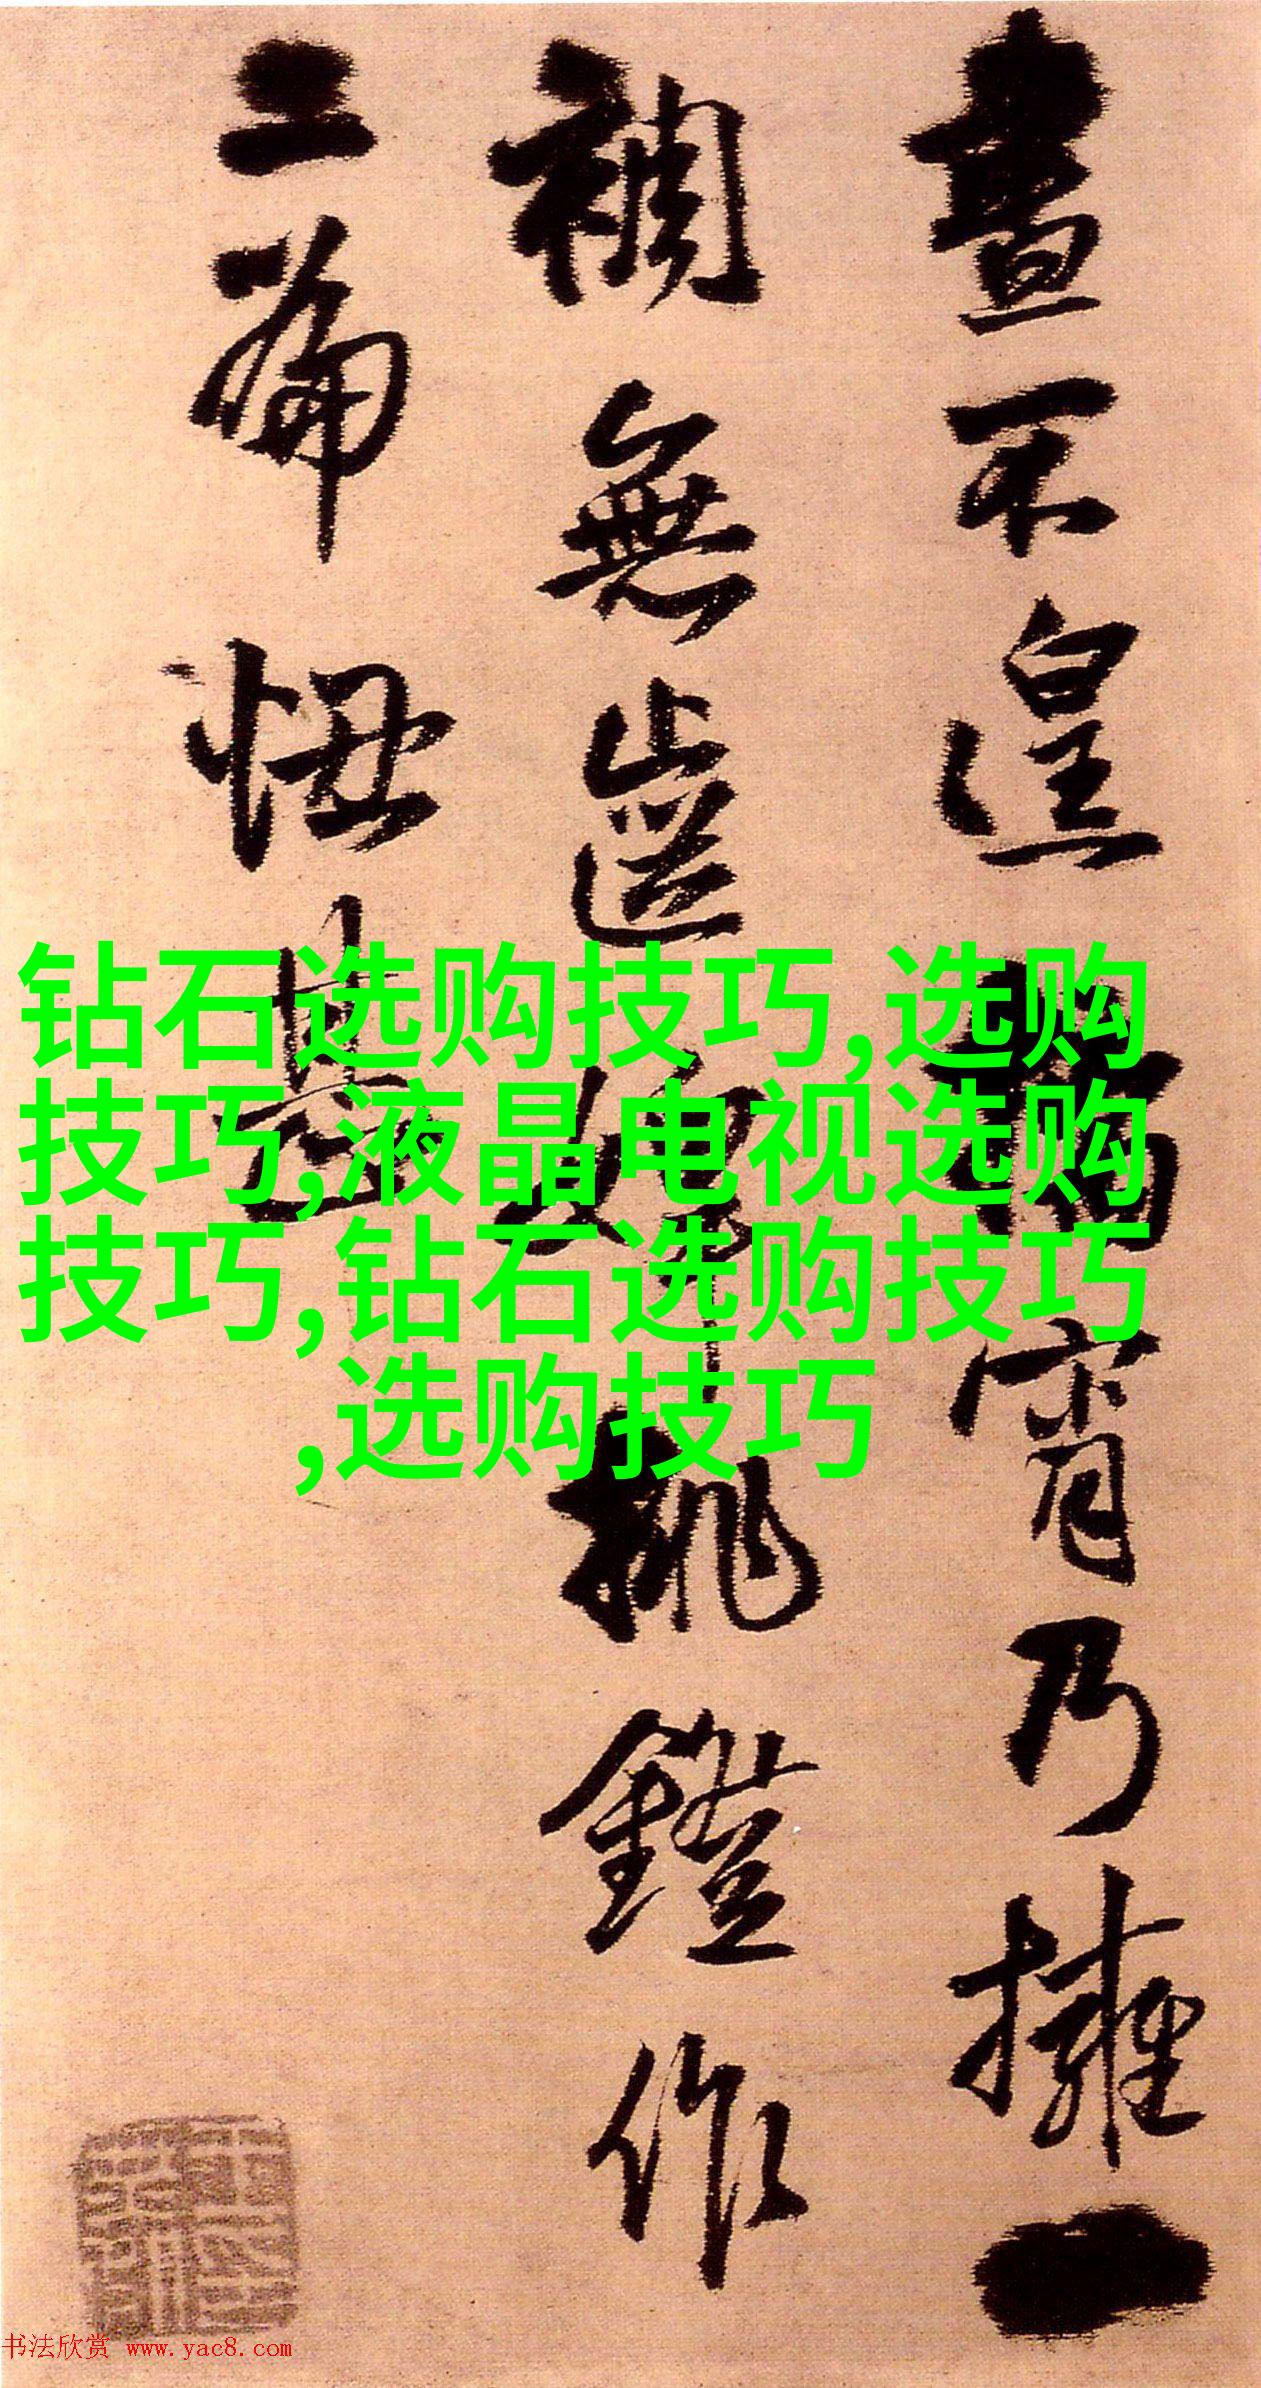 晝不遑宵乃擁一
裯無齒婢挑鐙作
二篇
钻石选购技巧,选购
技巧,液晶电视选购
技巧,钻石选购技巧
,选购技巧
书法欣赏 www.yac8.com